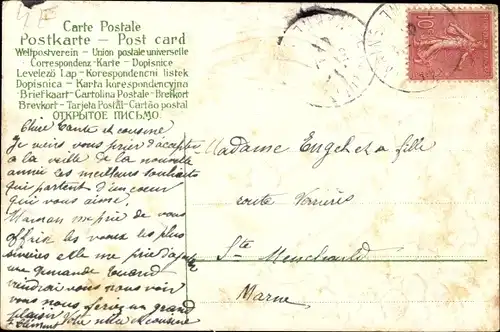 Carte Postale
Postkarte - Post card
Weltpostverein - Union postale universelle
Correspondenz-Karte - Dopisnice
Levelező Lap - Korespondencni listek
Dopisnica - Karta korespondencyjna
Briefkaart - Cartolina Postale - Brefkort
Brevkort - Tarjeta Postál - Cartão postal
ОТКРЫТОЕ ПИСЬМО.
Chère Tante et cousine
Je viens vous prier d'accepter
à la veille de la nouvelle
année les meilleurs souhaits
qui partent d'un cœur
qui vous aime.
Maman me prie de vous
offrir les vœux les plus
sincères elle me prie
me demande quand
viendrai vous nous voir
vous nous feriez un grand
plaisir
Votre nièce et cousine
Clément
Madame Engel et sa fille
route Verrières
Ste Menehould
Marne
10